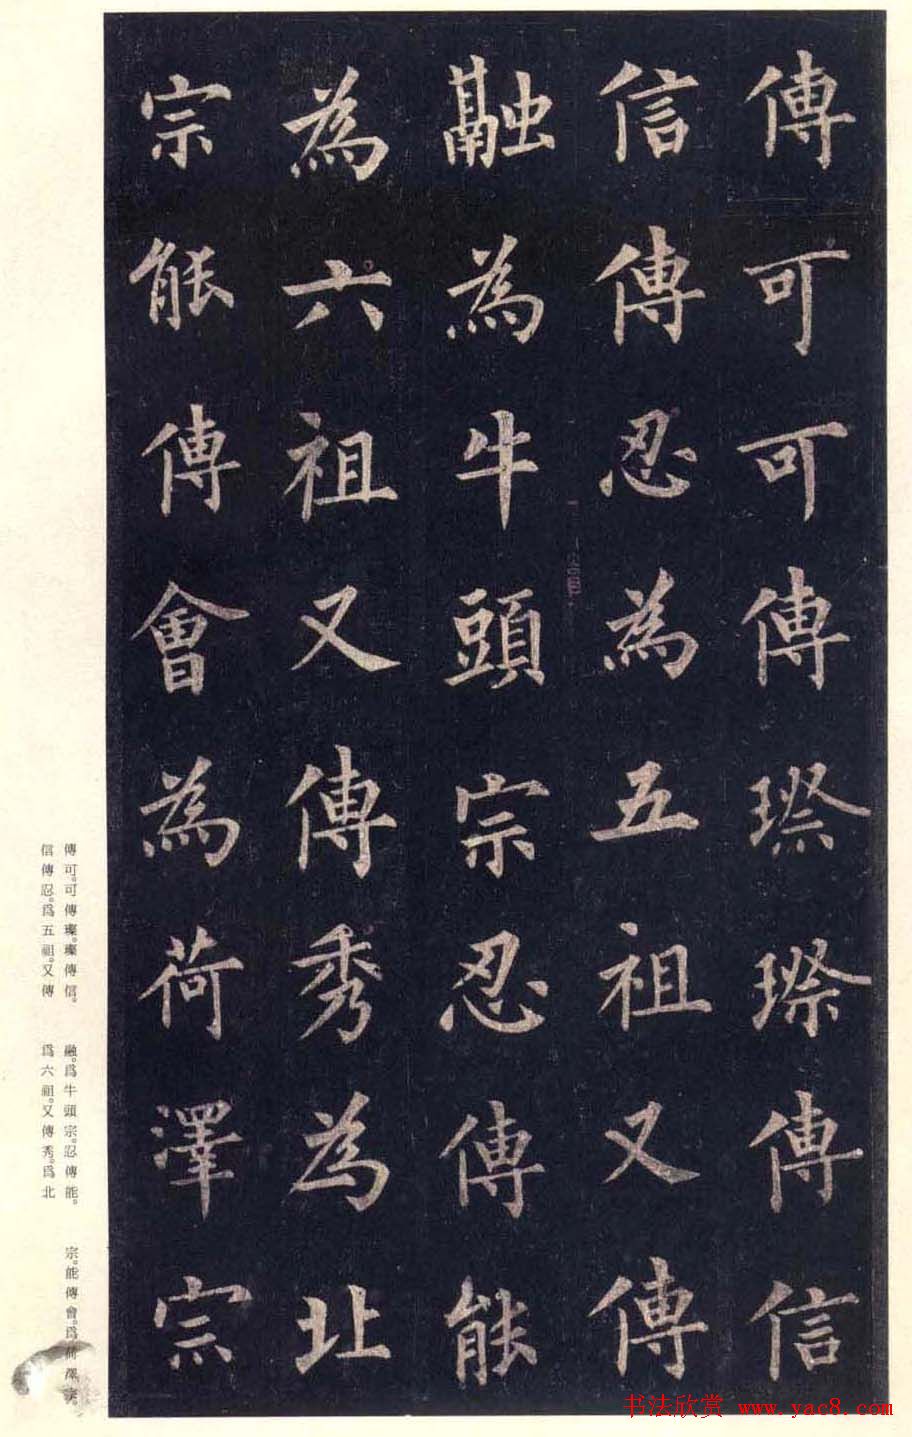 傳可可傳璨璨傳信
信傳忍為五祖又傳
融為牛頭宗忍傳能
為六祖又傳秀為北
宗能傳會為荷澤宗
傳可。可傳璨。璨傳信。
信傳忍。爲五祖。又傳
融。爲牛頭宗。忍傳能。
爲六祖。又傳秀。爲北
宗。能傳會。爲荷澤宗。
书法欣赏 www.yac8.com